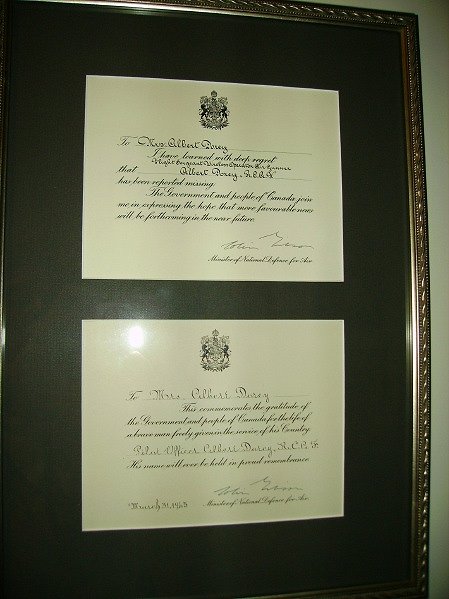 To Mrs. Albert Dorey
I have learned with deep regret
Flight Sergeant Wireless Operator Air Gunner
that Albert Dorey, R.C.A.F.
has been reported missing.
The Government and people of Canada join
me in expressing the hope that more favourable news
will be forthcoming in the near future.
Minister of National Defence for Air.
To Mrs. Albert Dorey
This commemorates the gratitude of
the Government and people of Canada for the life of
a brave man freely given in the service of his Country.
Pilot Officer Albert Dorey, R.C.A.F.
His name will ever be held in proud remembrance.
March 31, 1943
Minister of National Defence for Air.